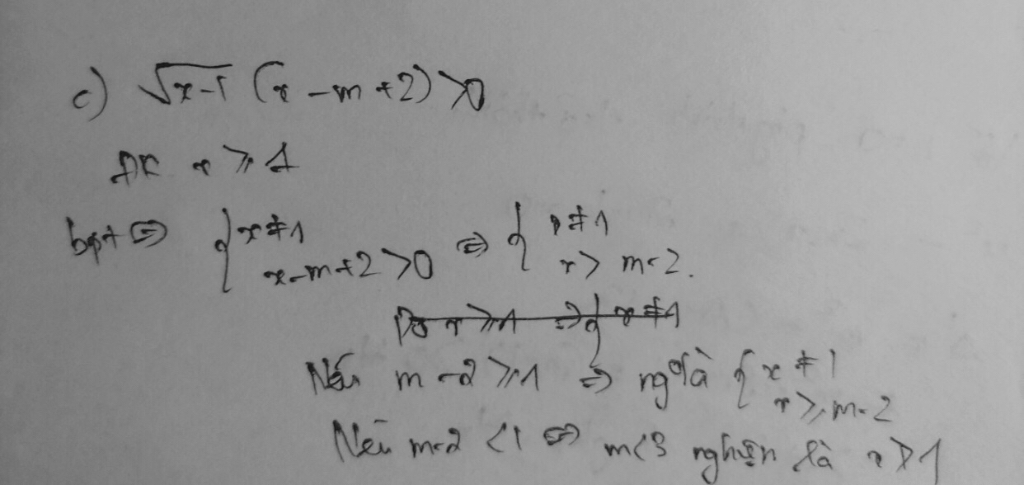 c) √x-1 (x - m + 2) > 0
ĐK x ≥ 1
bpt ⇔ { x ≠ 1 x - m + 2 > 0 ⇔ { x ≠ 1 x > m - 2.
Do x ≥ 1 ⇒ { x ≠ 1
Nếu m - 2 ≥ 1 ⇒ ng⁰ là { x ≠ 1 x ≥ m - 2
Nếu m - 2 < 1 ⇔ m < 3 nghiệm là x > 1